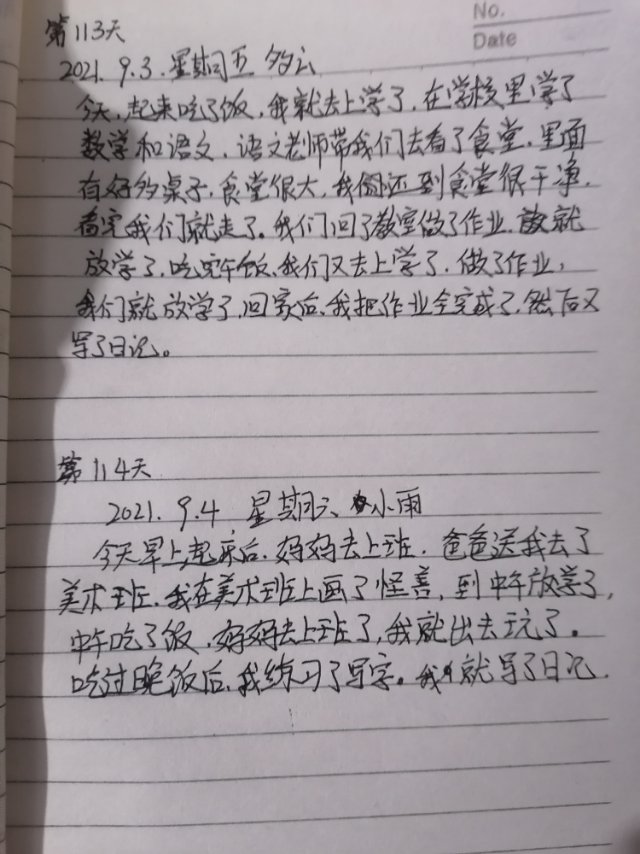 No.
Date
第113天
2021.9.3.星期五 多云
今天,起来吃了饭,我就去上学了,在学校里学了
数学和语文,语文老师带我们去看了食堂,里面
有好多桌子,食堂很大,我闻还到食堂很干净,
看完我们就走了。我们回了教室做了作业,就
放学了,吃完午饭,我们又去上学了,做了作业,
我们就放学了,回家后,我把作业全完成了,然后又
写了日记。
第114天
2021.9.4 星期六 小雨
今天早上起床后,妈妈去上班,爸爸送我去了
美术班,我在美术班上画了怪兽,到中午放学了,
中午吃了饭,妈妈去上班了,我就出去玩了。
吃过晚饭后,我练习了写字。我就写了日记.